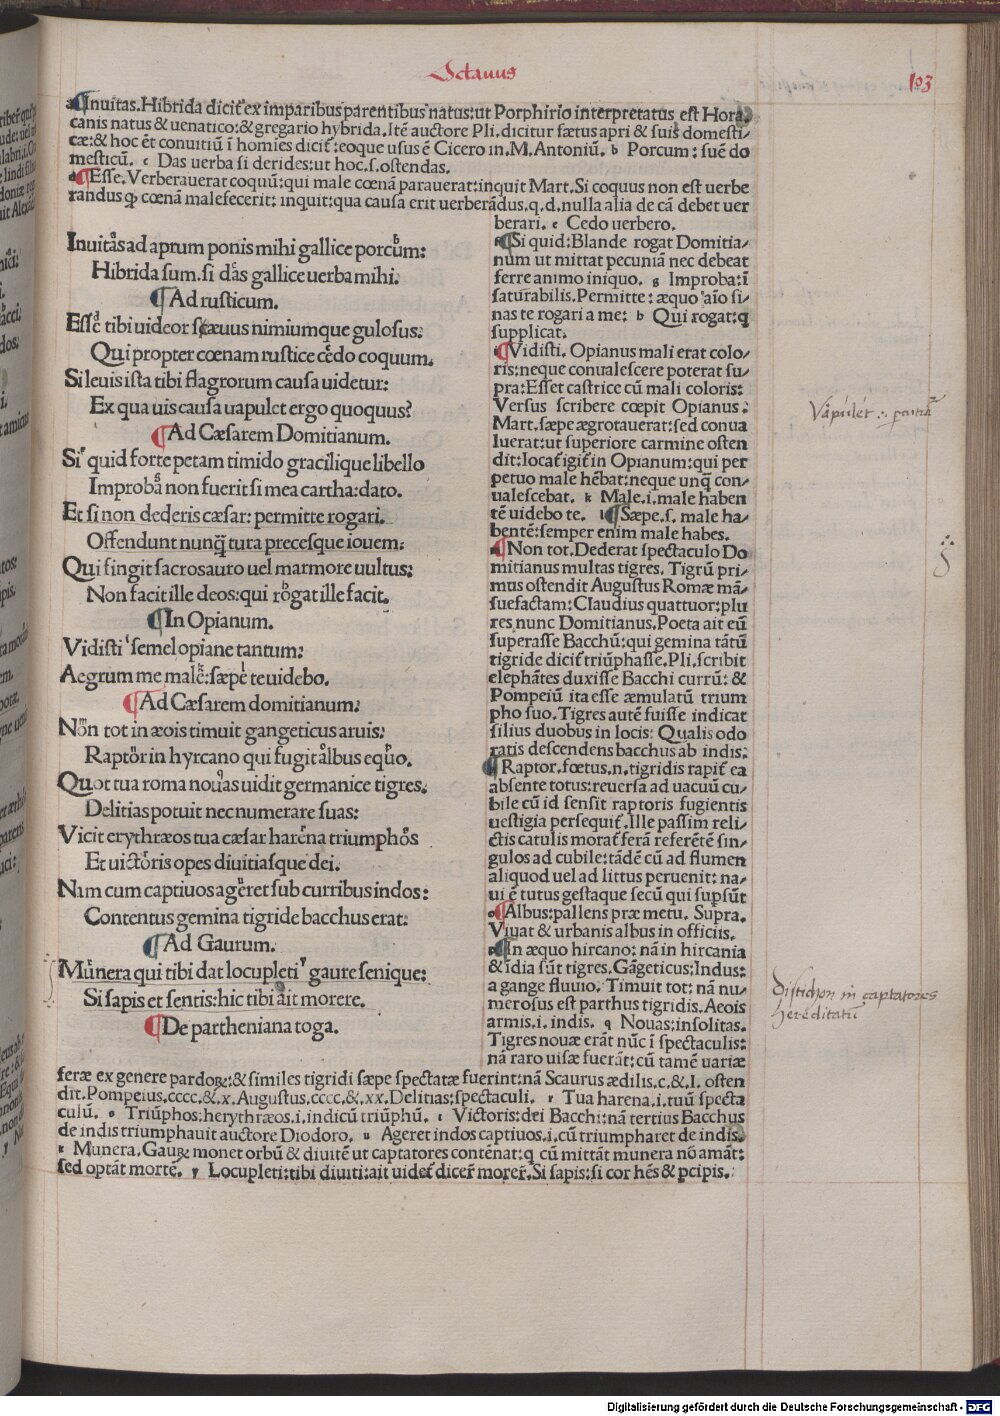 Octauus
103
Inuitas. Hibrida dicit̃ ex imparibus parentibus natus: ut Porphirio interpretatus est Hora
canis natus & uenatico: & gregario hybrida. Itẽ auctore Pli. dicitur fætus apri & suis domesti-
cæ: & hoc ẽt conuitiũ ĩ homies dicit̃: eoque usus ẽ Cicero in. M. Antoniũ. b Porcum: suẽ do
mesticũ. c Das uerba si derides: ut hoc. s. ostendas.
Esse. Verberauerat coquũ: qui male cœnã parauerat: inquit Mart. Si coquus non est uerbe
randus ꝙ cœnã malefecerit: inquit: qua causa erit uerberãdus. q. d. nulla alia de cã debet uer
berari. e Cedo uerbero.
Inuitas ad aprum ponis mihi gallice porcum:
Hibrida sum. si das gallice uerba mihi.
Ad rusticum.
Esse tibi uideor sæuus nimiumque gulosus:
Qui propter cœnam rustice cedo coquum.
Si leuis ista tibi flagrorum causa uidetur:
Ex qua uis causa uapulet ergo quoquus?
Ad Cæsarem Domitianum.
Si quid forte petam timido gracilique libello
Improba non fuerit si mea cartha: dato.
Et si non dederis cæsar: permitte rogari.
Offendunt nunq̃ tura precesque iouem:
Qui fingit sacros auro uel marmore uultus:
Non facit ille deos: qui rogat ille facit.
In Opianum.
Vidisti semel opiane tantum:
Aegrum me male: sæpe te uidebo.
Ad Cæsarem domitianum:
Non tot in æois timuit gangeticus aruis:
Raptor in hyrcano qui fugit albus equo.
Quot tua roma nouas uidit germanice tigres.
Delitias potuit nec numerare suas:
Vicit erythræos tua cæsar harena triumphos
Et uictoris opes diuitiasque dei.
Nam cum captiuos ageret sub curribus indos:
Contentus gemina tigride bacchus erat:
Ad Gaurum.
Munera qui tibi dat locupleti gaure senique:
Si sapis et sentis: hic tibi ait morere.
De partheniana toga.
Si quid: Blande rogat Domitia-
num ut mittat pecuniã nec debeat
ferre animo iniquo. g Improba: ĩ
saturabilis. Permitte: æquo aĩo si-
nas te rogari a me: h Qui rogat: q
supplicat.
Vidisti. Opianus mali erat colo-
ris: neque conualescere poterat su-
pra: Esset castrice cũ mali coloris:
Versus scribere cœpit Opianus:
Mart. sæpe ægrotauerat: sed conua
luerat: ut superiore carmine osten
dit: locat̃ igit̃ in Opianum: qui per
petuo male hẽbat: neque unq̃ con-
ualescebat. k Male. i. male haben
tẽ uidebo te. l Sæpe. s. male ha-
bentẽ: semper enim male habes.
Non tot. Dederat spectaculo Do
mitianus multas tigres. Tigrũ pri-
mus ostendit Augustus Romæ mã-
suefactam: Claudius quattuor: plu
res nunc Domitianus. Poeta ait eũ
superasse Bacchũ: qui gemina tãtũ
tigride dicit̃ triũphasse. Pli. scribit
elephãtes duxisse Bacchi currũ: &
Pompeiũ ita esse æmulatũ trium
pho suo. Tigres autẽ fuisse indicat
silius duobus in locis: Qualis odo
ratis descendens bacchus ab indis:
Raptor. fœtus. n. tigridis rapit̃ ea
absente totus: reuersa ad uacuũ cu-
bile cũ id sensit raptoris fugientis
uestigia persequit̃. Ille passim reli-
ctis catulis morat̃ ferã referẽtẽ sin-
gulos ad cubile: tãdẽ cũ ad flumen
aliquod uel ad littus peruenit: na-
ui ẽ tutus gestaque secũ qui supsũt
Albus: pallens præ metu. Supra.
Viuat & urbanis albus in officiis.
In æquo hircano: nã in hircania
& idia sũt tigres. Gãgeticus: Indus:
a gange fluuio. Timuit tot: nã nu-
merosus est parthus tigridis. Aeois
armis. i. indis. q Nouas: insolitas.
Tigres nouæ erãt nũc ĩ spectaculis:
nã raro uisæ fuerãt: cũ tamẽ uariæ
feræ ex genere pardoꝝ: & similes tigridi sæpe spectatæ fuerint: nã Scaurus ædilis. c. & l. osten
dit. Pompeius. cccc. & .x. Augustus. cccc. & .xx. Delitias: spectaculi. r Tua harena. i. tuũ specta
culũ. s Triũphos: herythræos. i. indicũ triũphũ. t Victoris: dei Bacchi: nã tertius Bacchus
de indis triumphauit auctore Diodoro. u Ageret indos captiuos. i. cũ triumpharet de indis.
x Munera. Gauꝝ monet orbũ & diuitẽ ut captatores contẽnat: q cũ mittãt munera nõ amãt:
sed optãt mortẽ. y Locupleti: tibi diuiti: ait uidet̃ dicer̃ morer̃. Si sapis: si cor hẽs & pcipis.
Distichon in captatores
hereditatũ
Digitalisierung gefördert durch die Deutsche Forschungsgemeinschaft - DFG